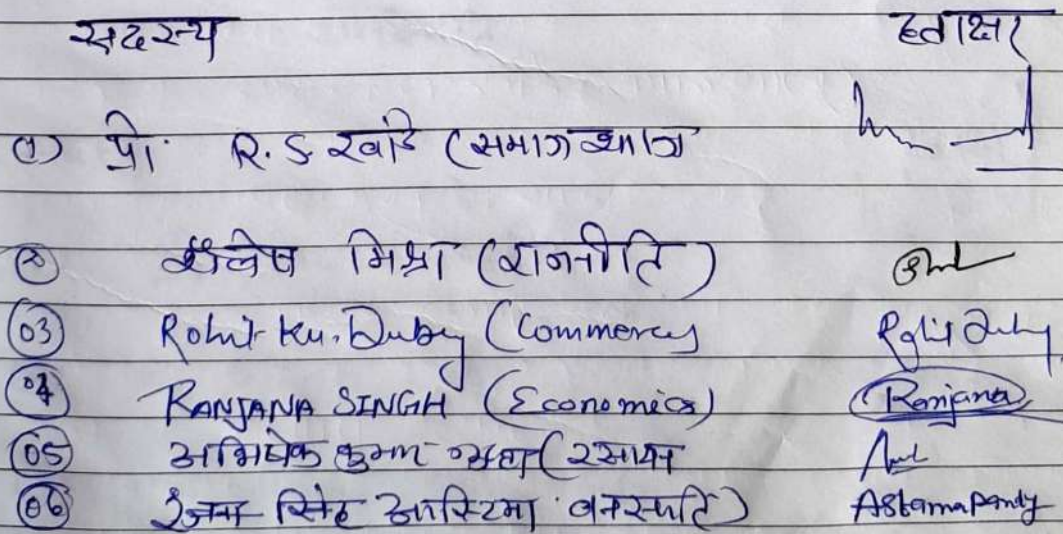 सदस्य हस्ताक्षर
(1) प्रो. R. S. खांडे (समाज शास्त्र
(2) शैलेष मिश्रा (राजनीति)
(03) Rohit Ku. Dubey (Commerce Rohit Dubey
(04) RANJANA SINGH (Economics) Ranjana
(05) अभिषेक कुमार (रसायन
(06) सिंह आस्टिमा वनस्पति) Astamapandy